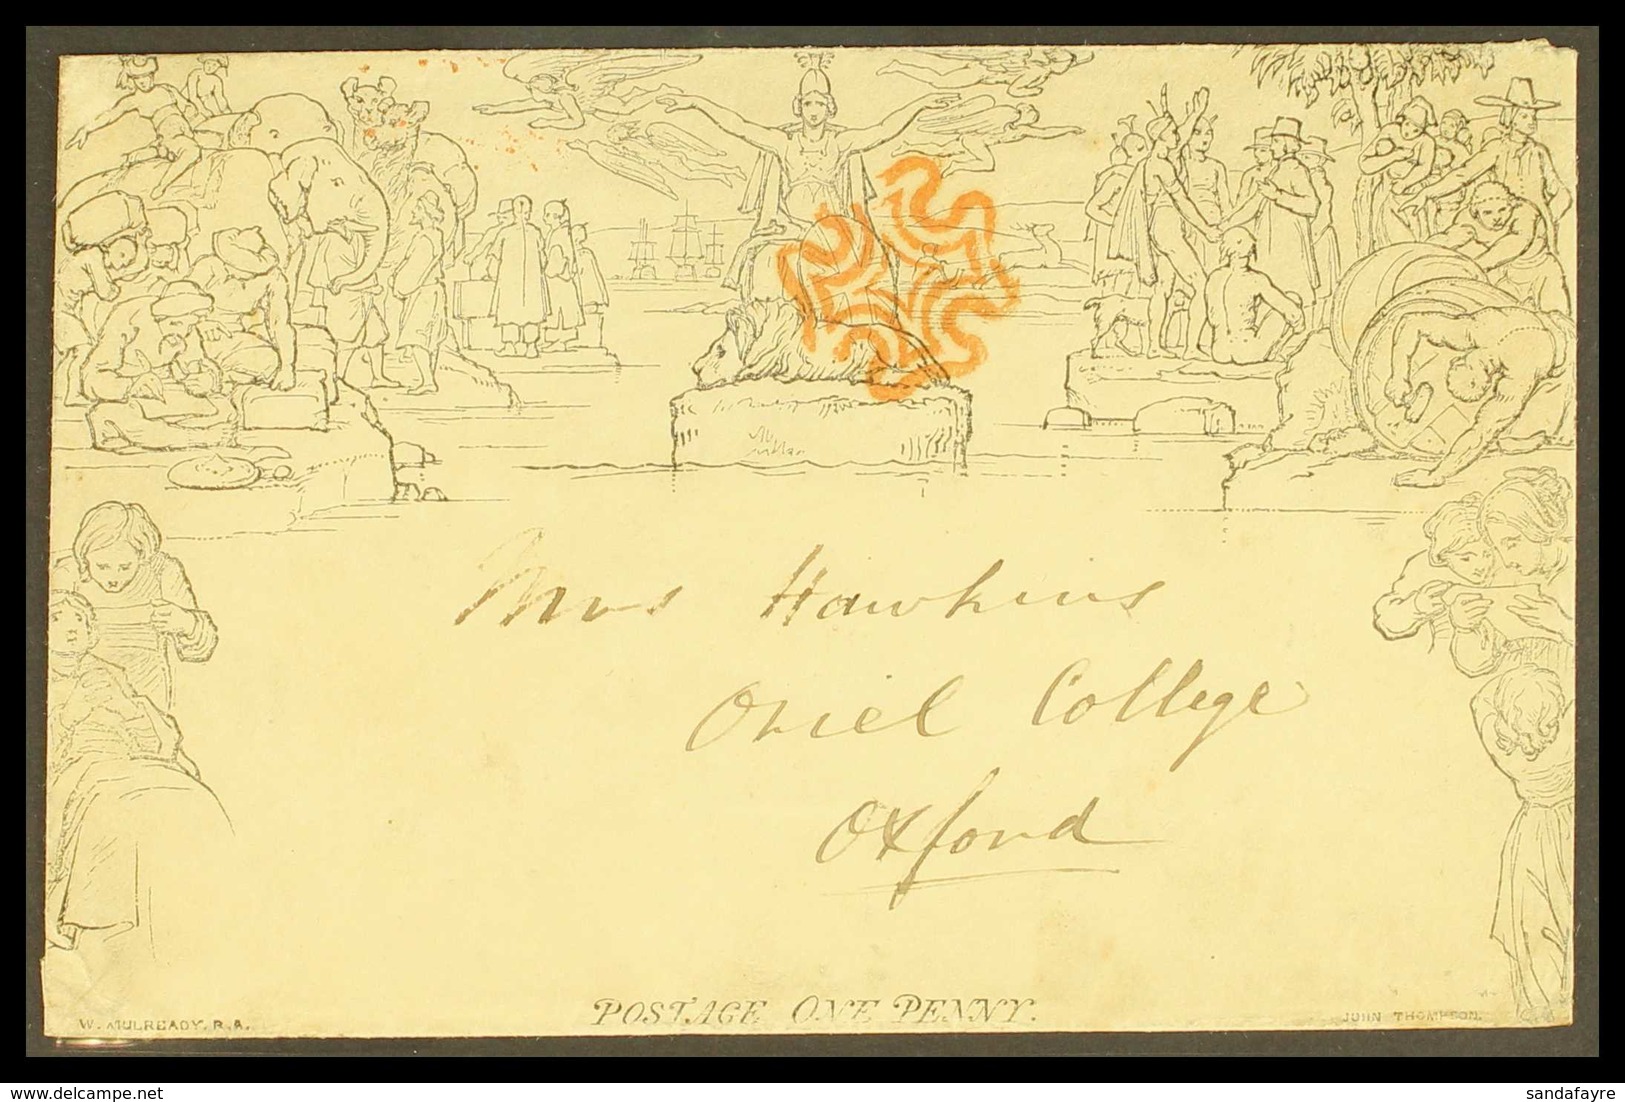 Mrs Hawkins
Oriel College
Oxford
POSTAGE ONE PENNY.
W. MULREADY. R.A.
JOHN THOMPSON.
delcampe.net
sandafayre